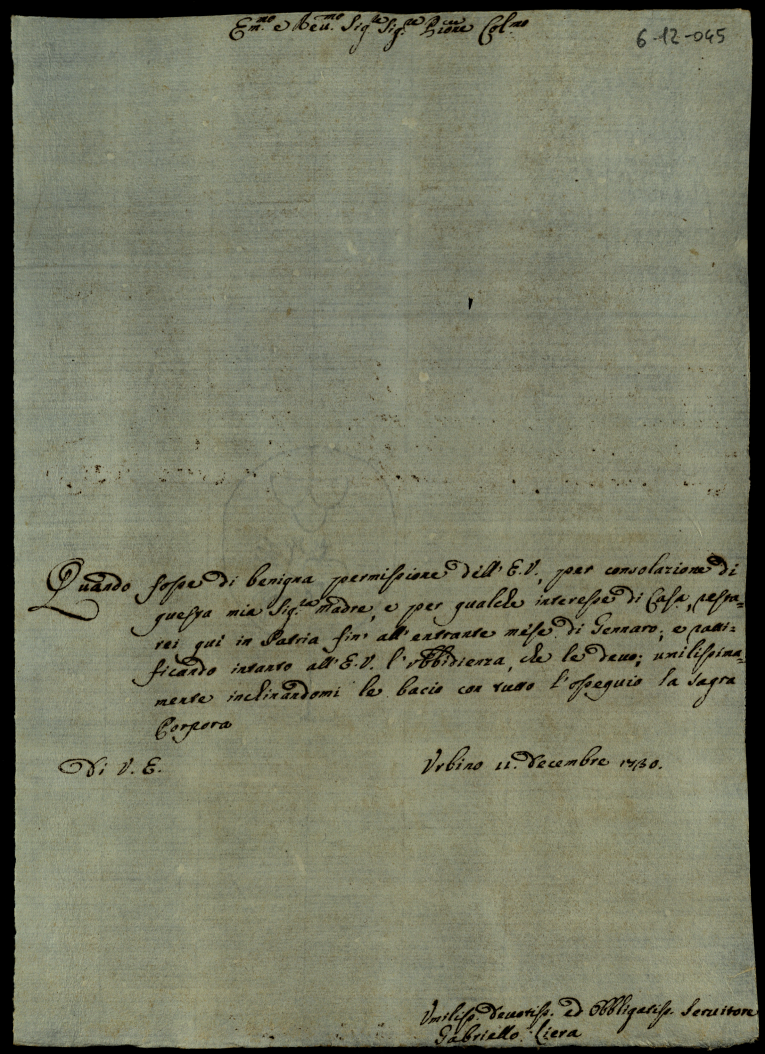 Em.mo e Reu.mo Sig.re Sig.re P.rone Col.mo
6-12-045
Quando fosse di benigna permissione dell'E.V., per consolazione di
questa mia Sig.ra madre, e per qualche interesse di Casa, resta-
rei qui in Patria fin' all'entrante mese di Gennaro; e ratti-
ficando intanto all'E.V. l'obbidienza, che le deuo; umilissima-
mente inchinandomi le bacio con tutto l'ossequio la Sagra
Porpora
Di V. E. Vrbino 11. Decembre 1730.
Vmiliss. Deuotiss. ed Obbligatiss. Seruitore
Gabriello